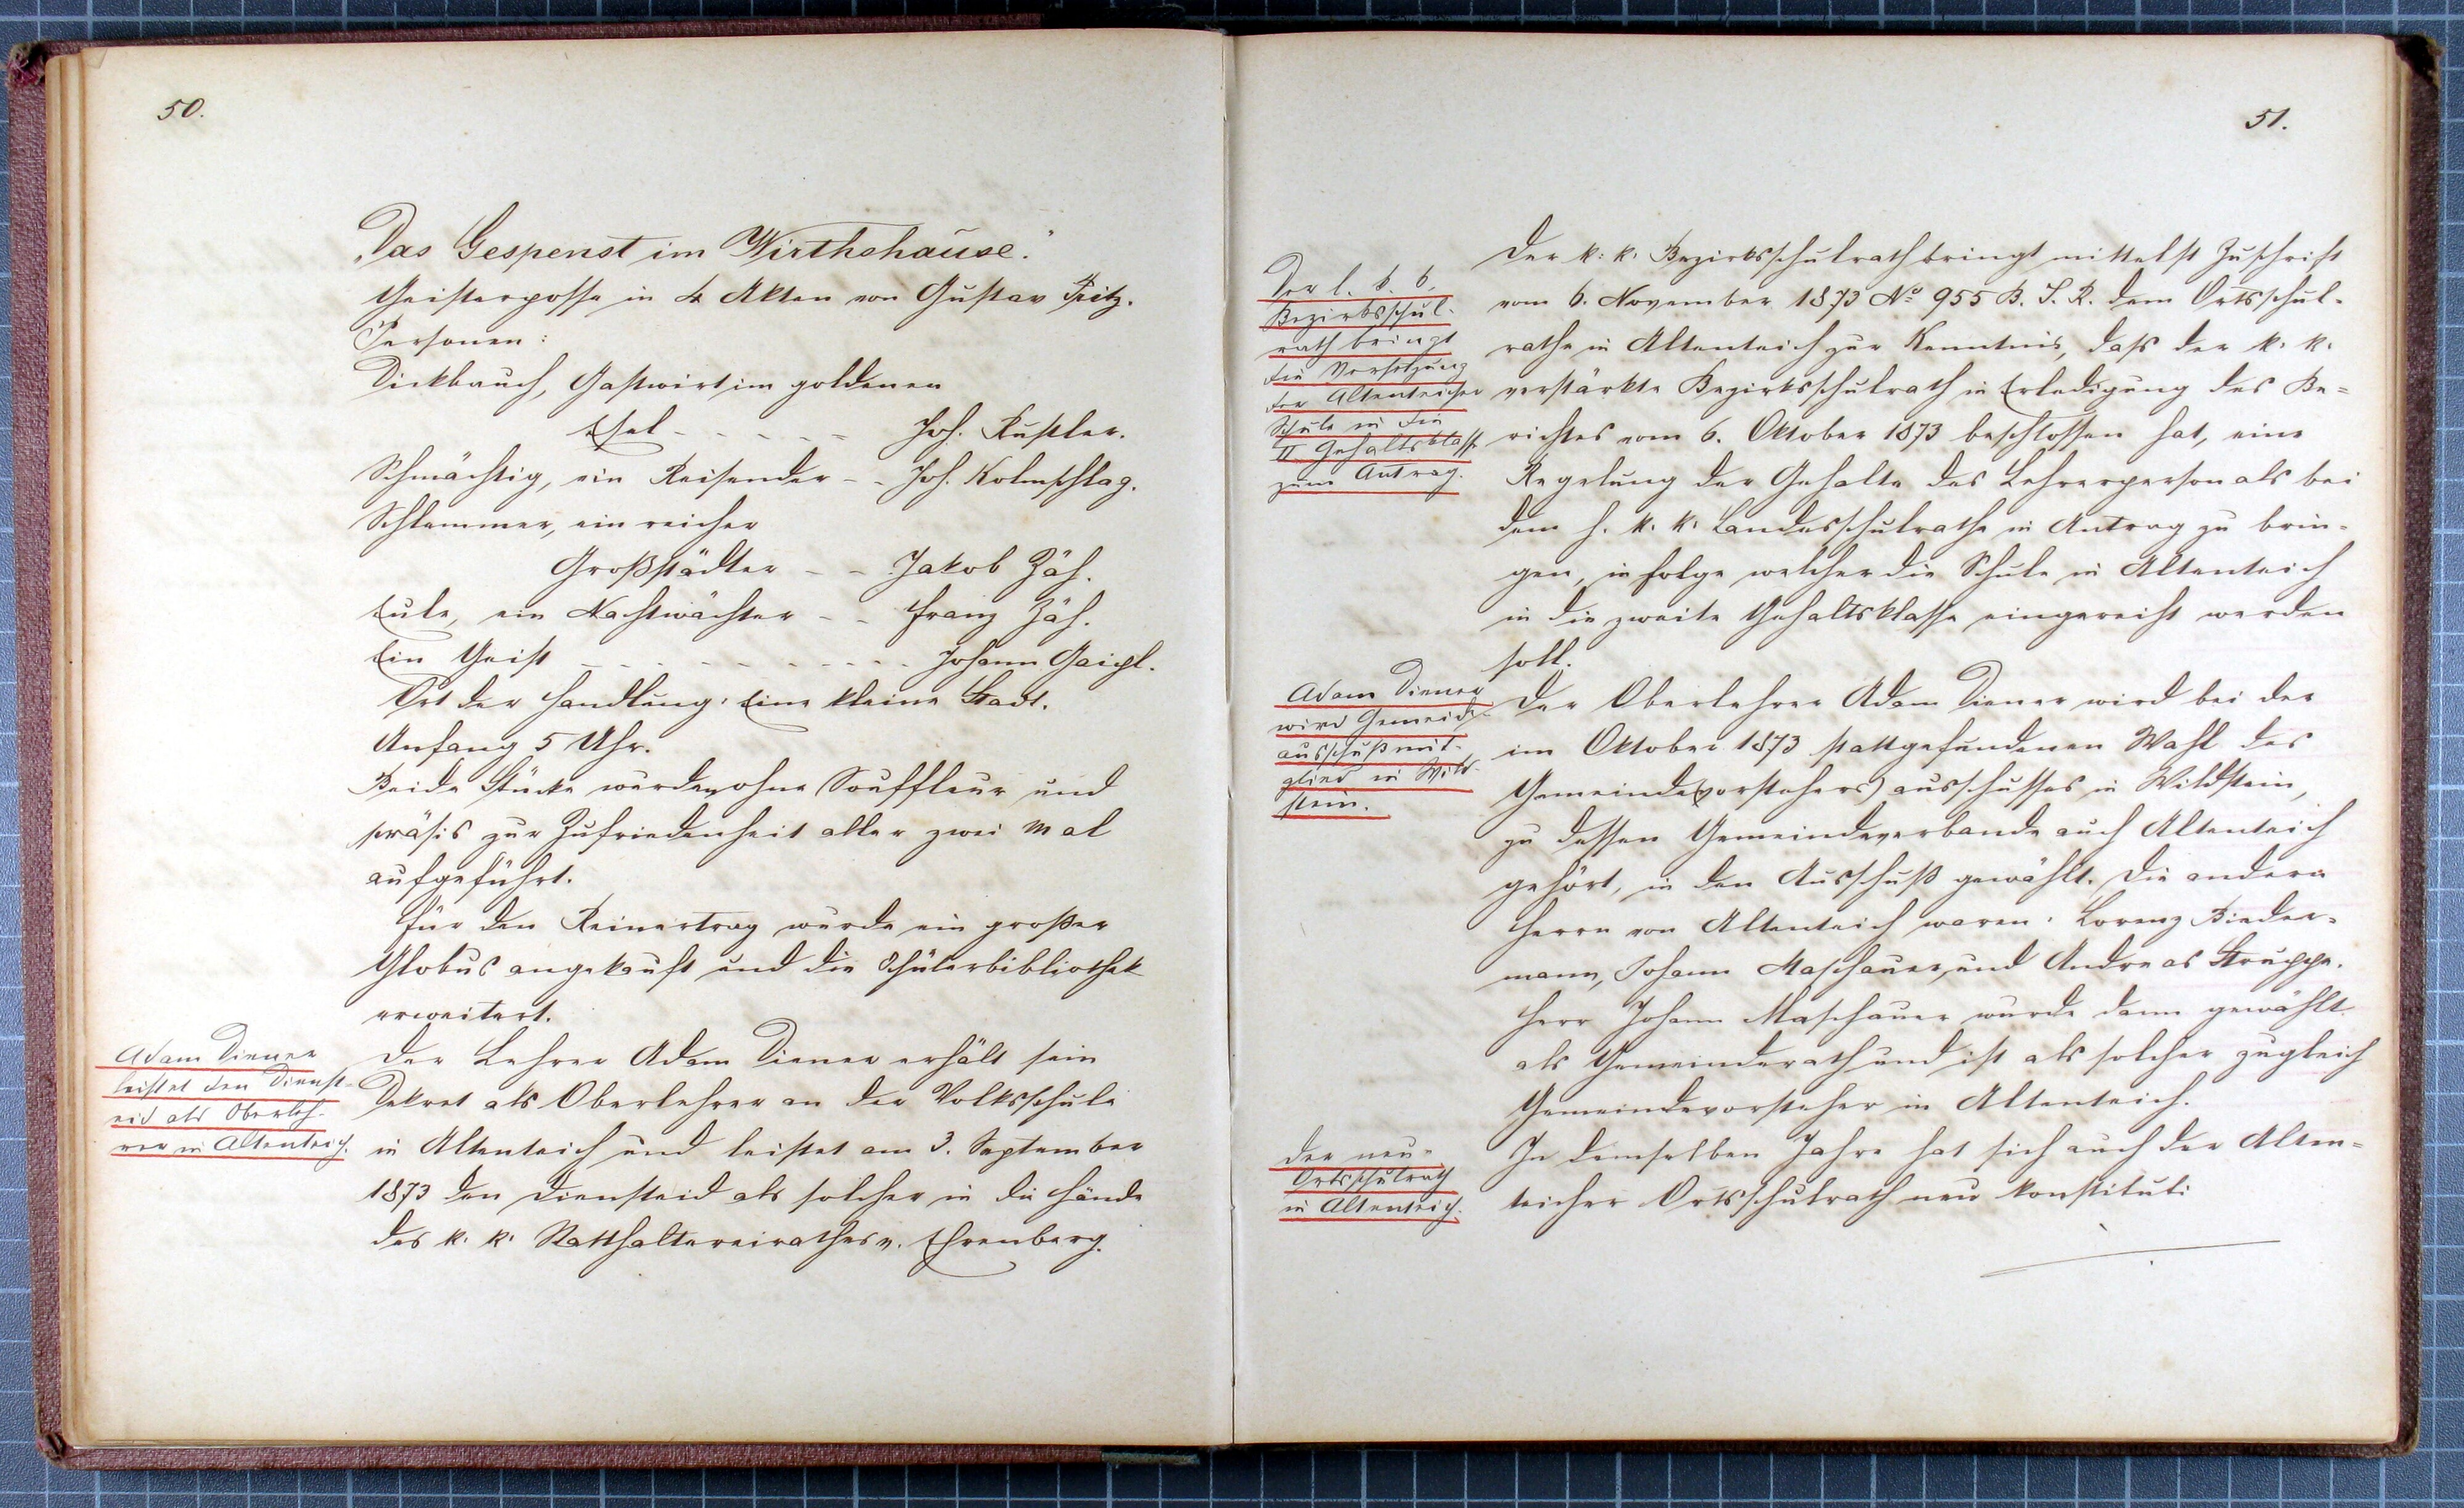 50.
„Das Gespenst im Wirthshause.“
Geisterposse in 4 Akten von Gustav Fritz.
Personen:
Dickbauch, Gastwirt im goldenen
Esel - - - - - Joh. Rustler.
Schmächtig, ein Reisender - - Joh. Kolmschlag.
Schlemmer, ein reicher
Großstädter - - Jakob Zäh.
Eule, ein Nachtwächter - - Franz Zäh.
Ein Geist - - - - - - - - - Johann Gaipl.
Ort der Handlung: Eine kleine Stadt.
Anfang 5 Uhr.
Beide Stücke wurden ohne Souffleur und
präsis zur Zufriedenheit aller zwei Mal
aufgeführt.
Für den Reinertrag wurde ein großer
Globus angekauft und die Schülerbibliothek
erweitert.
Adam Diener
leistet den Dienst-
eid als Oberleh-
rer in Altenteich.
Der Lehrer Adam Diener erhält sein
Dekret als Oberlehrer an der Volksschule
in Altenteich und leistet am 3. September
1873 den Diensteid als solcher in die Hände
des k. k. Statthaltereirathes v. Ehrenberg.
51.
Der l. k. k.
Bezirksschul-
rath bringt
die Versetzung
der Altenteicher
Schule in die
II. Gehaltsklasse
zum Antrag.
Der k. k. Bezirksschulrath bringt mittelst Zuschrift
vom 6. November 1873 No 955 B. S. R. dem Ortsschul-
rathe in Altenteich zur Kenntnis, daß der k. k.
verstärkte Bezirksschulrath in Erledigung des Be-
richtes vom 6. Oktober 1873 beschlossen hat, eine
Regelung der Gehalte des Lehrerpersonals bei
dem h. k. k. Landesschulrathe in Antrag zu brin-
gen, in folge welcher die Schule in Altenteich
in die zweite Gehaltsklasse eingereiht werden
soll.
Adam Diener
wird Gemeinde-
ausschußmit-
glied in Wild-
stein.
Der Oberlehrer Adam Diener wird bei der
im Oktober 1873 stattgefundenen Wahl des
Gemeinde(vorstehers) ausschusses in Wildstein,
zu dessen Gemeindeverbande auch Altenteich
gehört, in den Ausschuß gewählt. Die andern
Herrn von Altenteich waren: Lorenz Bieder-
mann, Johann Maschauer, und Andreas Struppe.
Herr Johann Maschauer wurde dann gewählt
als Gemeinderath und ist als solcher zugleich
Gemeindevorsteher in Altenteich.
Der neue
Ortsschulrath
in Altenteich.
In demselben Jahre hat sich auch der Alten-
teicher Ortsschulrath neu konstituti